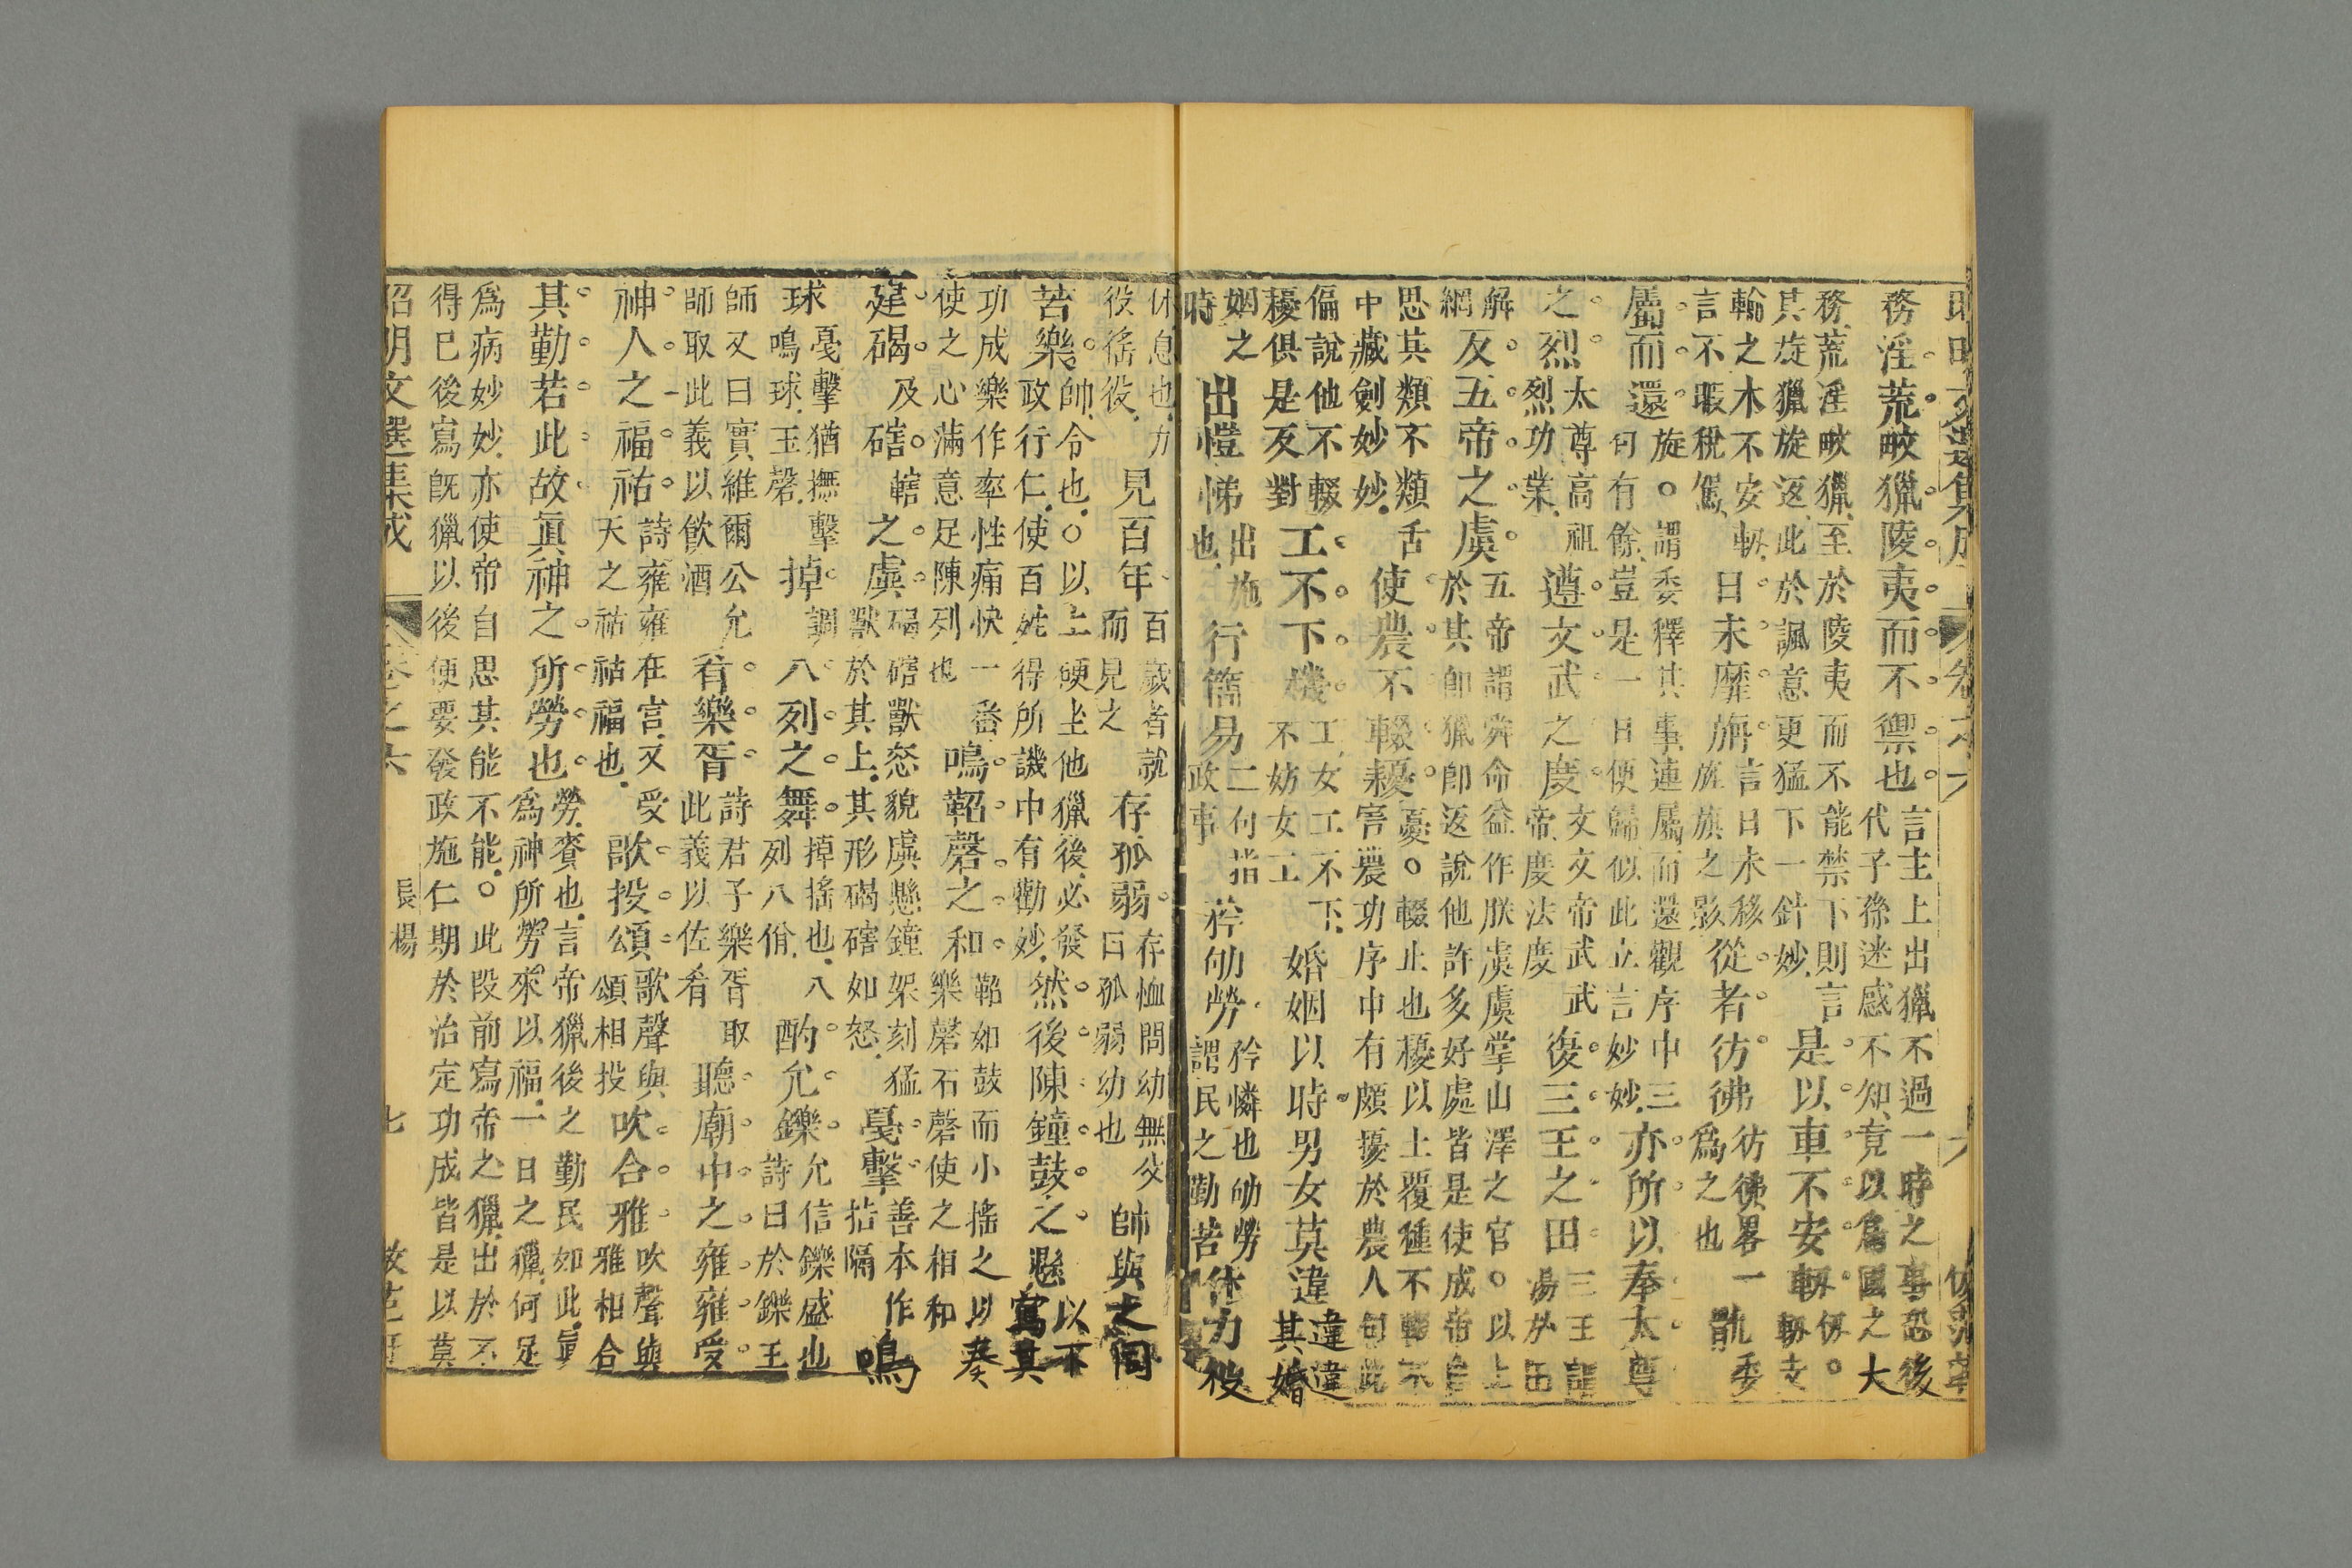 昭明文選集成 卷之六 六
務淫荒畋獵陵夷而不禦也言主上出獵不過一時之事恐後代子孫迷惑不知竟以爲國之大
務荒淫畋獵至於陵夷而不能禁下則言其旋獵旋返此於諷意更猛下一針妙是以車不安軔仞。軔支
輪之木不安軔言不暇稅駕日未靡旃言日未移旌旗之影從者彷彿彷彿畧一爲之也骩委
屬而還旋○謂委釋其事連屬而還觀序中三句有餘豈是一日便歸似此立言妙妙亦所以奉太尊
之烈太尊高祖烈功業遵文武之度文文帝武武帝度法度復三王之田三王謂湯於田
解網反五帝之虞五帝謂舜命益作朕虞虞掌山澤之官○以上於其卽獵卽返說他許多好處皆是使成帝自
思其類不類舌中藏劍妙妙使農不輟耰憂○輟止也耰以土覆種不輟不害農功序中有頗擾於農人句此
偏說他不輟耰俱是反對工不下機工女工不下不妨女工婚姻以時男女莫違違違其婚
姻之時出愷悌出施也行簡易二句指政事矜劬勞矜憐也劬勞謂民之勤苦休力役
休息也力役徭役見百年百歲者就而見之存孤弱存恤問幼無父曰孤弱幼也帥與之同
苦樂帥令也○以上硬坐他獵後必發政行仁使百姓得所譏中有勸妙然後陳鐘鼓之懸以不寫其
功成樂作率性痛快一番使之心滿意足陳列也鳴鞀磬之和鞀如鼓而小搖之以樂磬石磬使之相和奏
建碣及磍轄之虡碣磍獸怒貌虡懸鐘架刻猛獸於其上其形碣磍如怒戛擊善本作拮隔鳴
球戛擊猶撫擊鳴球玉磬掉調八列之舞掉搖也八列八佾酌允鑠允信鑠盛也詩曰於鑠王
師又曰實維爾公允師取此義以飲酒肴樂胥詩君子樂胥取此義以佐肴聽廟中之雍雍受
神人之福祜詩雍雍在宮又受天之祜祜福也歌投頌歌聲與頌相投吹合雅吹聲與雅相合
其勤若此故眞神之所勞也勞賚也言帝獵後之勤民如此眞爲神所勞來以福一日之獵何足
爲病妙妙亦使帝自思其能不能○此段前寫帝之獵出於不得已後寫旣獵以後便要發政施仁期於治定功成皆是以莫
昭明文選集成 卷之六 長楊 七